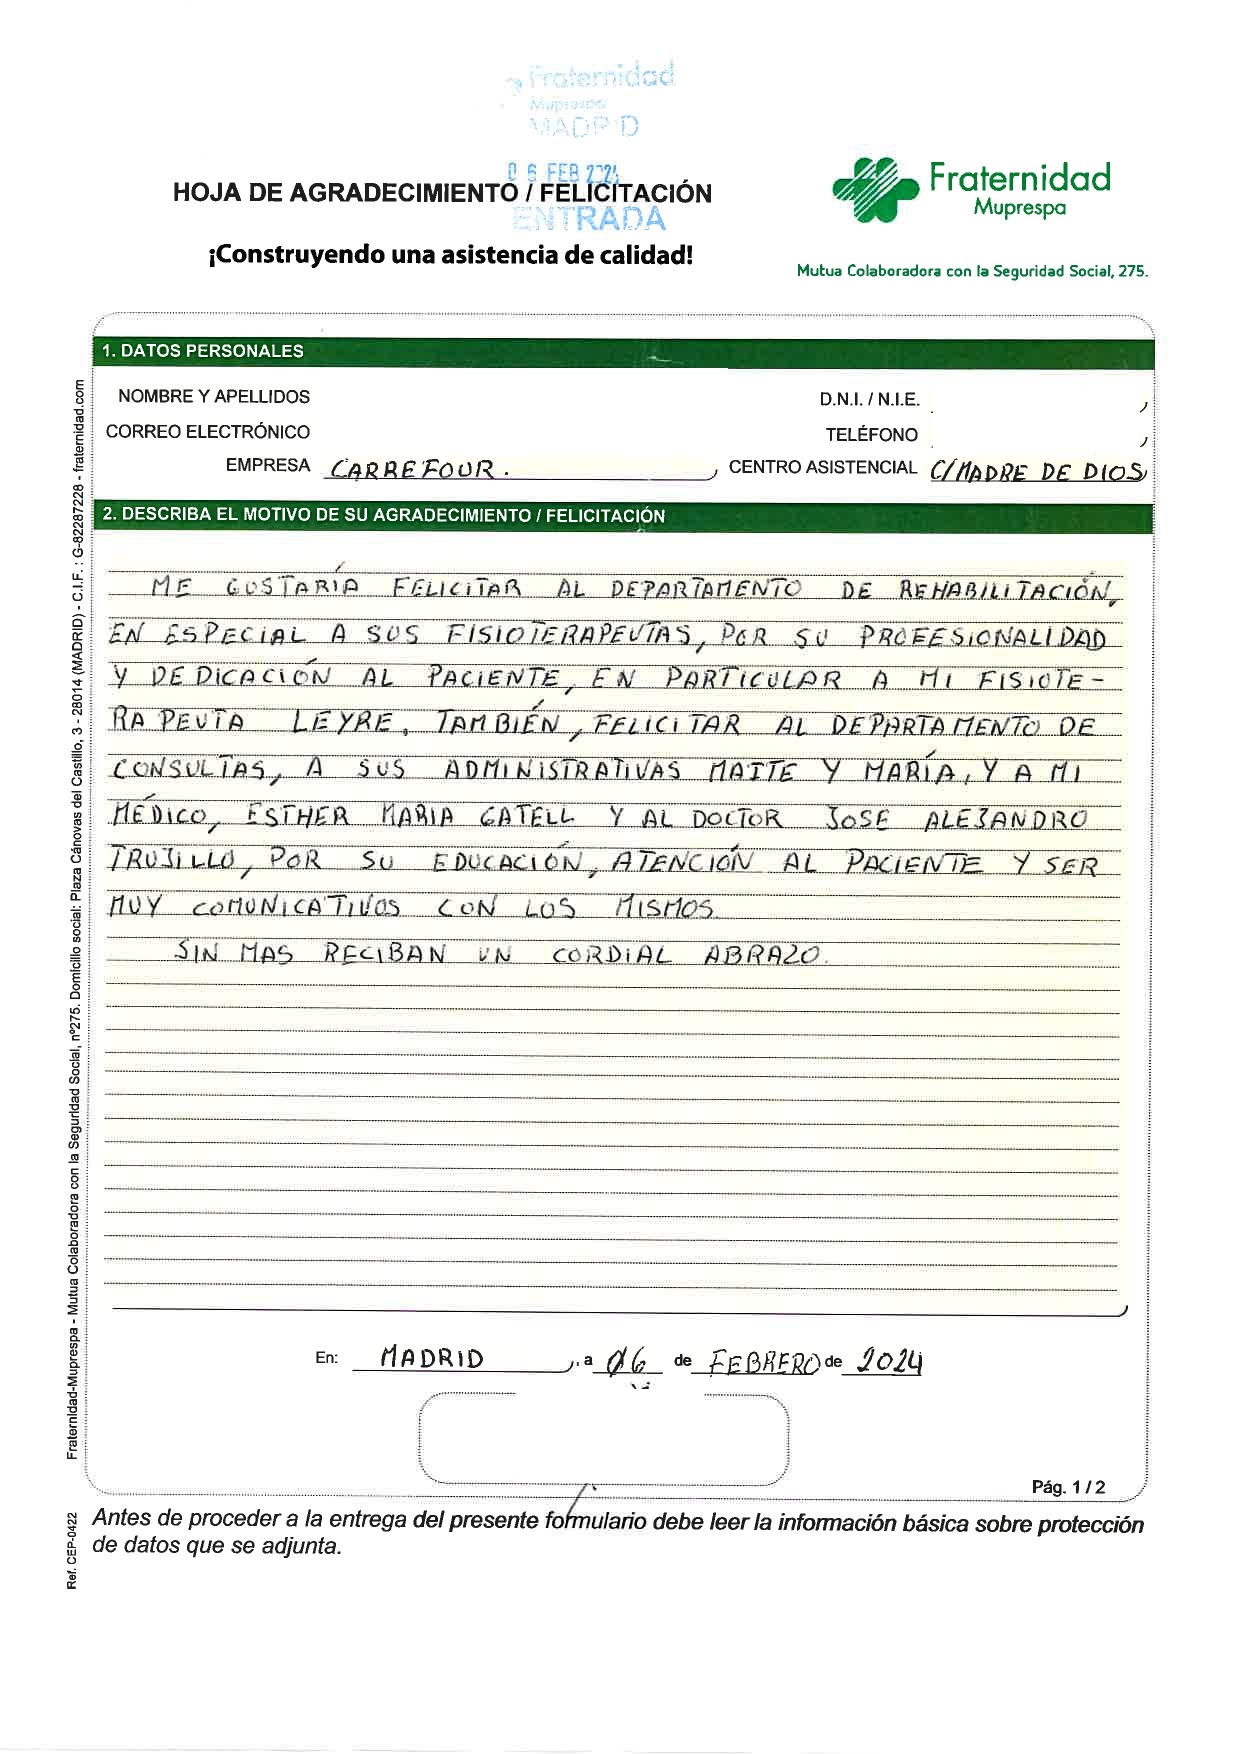 Fraternidad
Muprespa
MADRID
06 FEB 2024
ENTRADA
HOJA DE AGRADECIMIENTO / FELICITACIÓN
¡Construyendo una asistencia de calidad!
Fraternidad
Muprespa
Mutua Colaboradora con la Seguridad Social, 275.
1. DATOS PERSONALES
NOMBRE Y APELLIDOS
D.N.I. / N.I.E.
CORREO ELECTRÓNICO
TELÉFONO
EMPRESA CARREFOUR.
CENTRO ASISTENCIAL C/MADRE DE DIOS
2. DESCRIBA EL MOTIVO DE SU AGRADECIMIENTO / FELICITACIÓN
ME GUSTARÍA FELICITAR AL DEPARTAMENTO DE REHABILITACIÓN,
EN ESPECIAL A SUS FISIOTERAPEUTAS, POR SU PROFESIONALIDAD
Y DEDICACIÓN AL PACIENTE, EN PARTICULAR A MI FISIOTE-
RAPEUTA LEYRE. TAMBIÉN, FELICITAR AL DEPARTAMENTO DE
CONSULTAS, A SUS ADMINISTRATIVAS MAITE Y MARÍA, Y A MI
MÉDICO, ESTHER MARIA GATELL Y AL DOCTOR JOSE ALEJANDRO
TRUJILLO, POR SU EDUCACIÓN, ATENCIÓN AL PACIENTE Y SER
MUY COMUNICATIVOS CON LOS MISMOS.
SIN MAS RECIBAN UN CORDIAL ABRAZO.
En: MADRID, a 06 de FEBRERO de 2024
Pág. 1 / 2
Antes de proceder a la entrega del presente formulario debe leer la información básica sobre protección
de datos que se adjunta.
Fraternidad-Muprespa - Mutua Colaboradora con la Seguridad Social, nº275. Domicilio social: Plaza Cánovas del Castillo, 3 - 28014 (MADRID) - C.I.F. : G-82287228 - fraternidad.com
Ref. CEP-0422